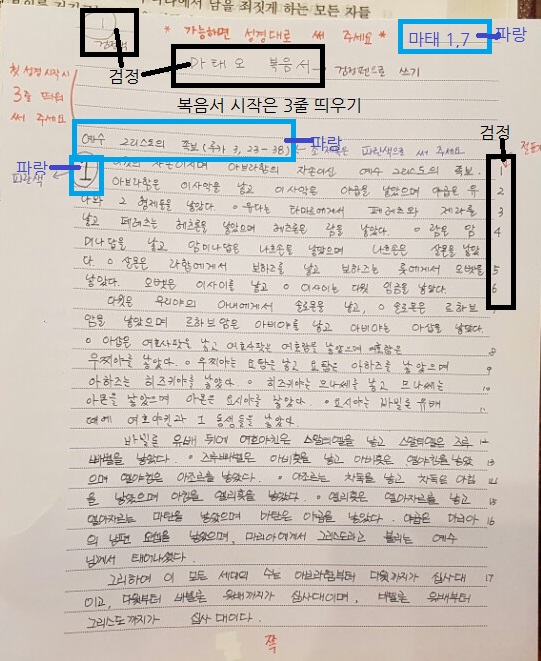 나라에서 남을 죄짓게 하는 모든 자들
1
검정색
* 가능하면 성경대로 써 주세요 *
마태 1,7 파랑
검정
마태오 복음서
검정펜으로 쓰기
첫 성경 시작 시
3줄 띄워
써 주세요
복음서 시작은 3줄 띄우기
검정
예수 그리스도의 족보 (루카 3, 23-38)
파랑
소제목은 파란색으로 써 주세요
파랑
파란색
1 다윗의 자손이시며 아브라함의 자손이신 예수 그리스도의 족보. 1
아브라함은 이사악을 낳고 이사악은 야곱을 낳았으며 야곱은 유 2
다와 그 형제들을 낳았다. ○ 유다는 타마르에게서 페레츠와 제라를 3
낳고 페레츠는 헤츠론을 낳았으며 헤츠론은 람을 낳았다. ○ 람은 암 4
미나답을 낳고 암미나답은 나흐손을 낳았으며 나흐손은 살몬을 낳았
다. ○ 살몬은 라합에게서 보아즈를 낳고 보아즈는 룻에게서 오벳을 5
낳았다. 오벳은 이사이를 낳고 ○ 이사이는 다윗 임금을 낳았다. 6
다윗은 우리야의 아내에게서 솔로몬을 낳고, ○ 솔로몬은 르하브
암을 낳았으며 르하브암은 아비야를 낳고 아비야는 아삽을 낳았다.
○ 아삽은 여호사팟을 낳고 여호사팟은 여호람을 낳았으며 여호람은 8
우찌야를 낳았다. ○ 우찌야는 요탐을 낳고 요탐은 아하즈를 낳았으며 9
아하즈는 히즈키야를 낳았다. ○ 히즈키야는 므나쎄를 낳고 므나쎄는 10
아몬을 낳았으며 아몬은 요시야를 낳았다. ○ 요시야는 바빌론 유배 11
때에 여호야킨과 그 동생들을 낳았다.
바빌론 유배 뒤에 여호야킨은 스알티엘을 낳고 스알티엘은 즈루 12
빠벨을 낳았다. ○ 즈루빠벨은 아비훗을 낳고 아비훗은 엘야킴을 낳았 13
으며 엘야킴은 아조르를 낳았다. ○ 아조르는 차독을 낳고 차독은 아킴 14
을 낳았으며 아킴은 엘리훗을 낳았다. ○ 엘리훗은 엘아자르를 낳고 15
엘아자르는 마탄을 낳았으며 마탄은 야곱을 낳았다. 야곱은 마리아 16
의 남편 요셉을 낳았으며, 마리아에게서 그리스도라고 불리는 예수
님께서 태어나셨다.
그리하여 이 모든 세대의 수는 아브라함부터 다윗까지가 십사 대 17
이고, 다윗부터 바빌론 유배까지가 십사 대이며, 바빌론 유배부터
그리스도까지가 십사 대이다.